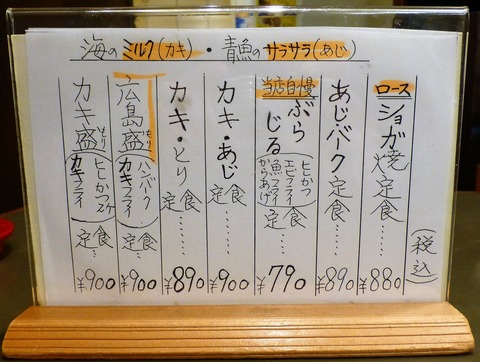 海のミルク(カキ)・青魚のサラサラ(あじ)
(税込)
ロース ショガ焼定食…… ¥880
あじ・バーク定食…… ¥890
当店自慢 ぶらじる (ヒヒかつ エビフライ 魚フライ からあげ) 定食… ¥790
カキ・あじ定食…… ¥900
カキ・とり定食…… ¥890
広島盛もり (ハンバーク カキフライ) 定食… ¥900
カキ盛もり (ヒヒかつ2ケ カキフライ) 定食… ¥900